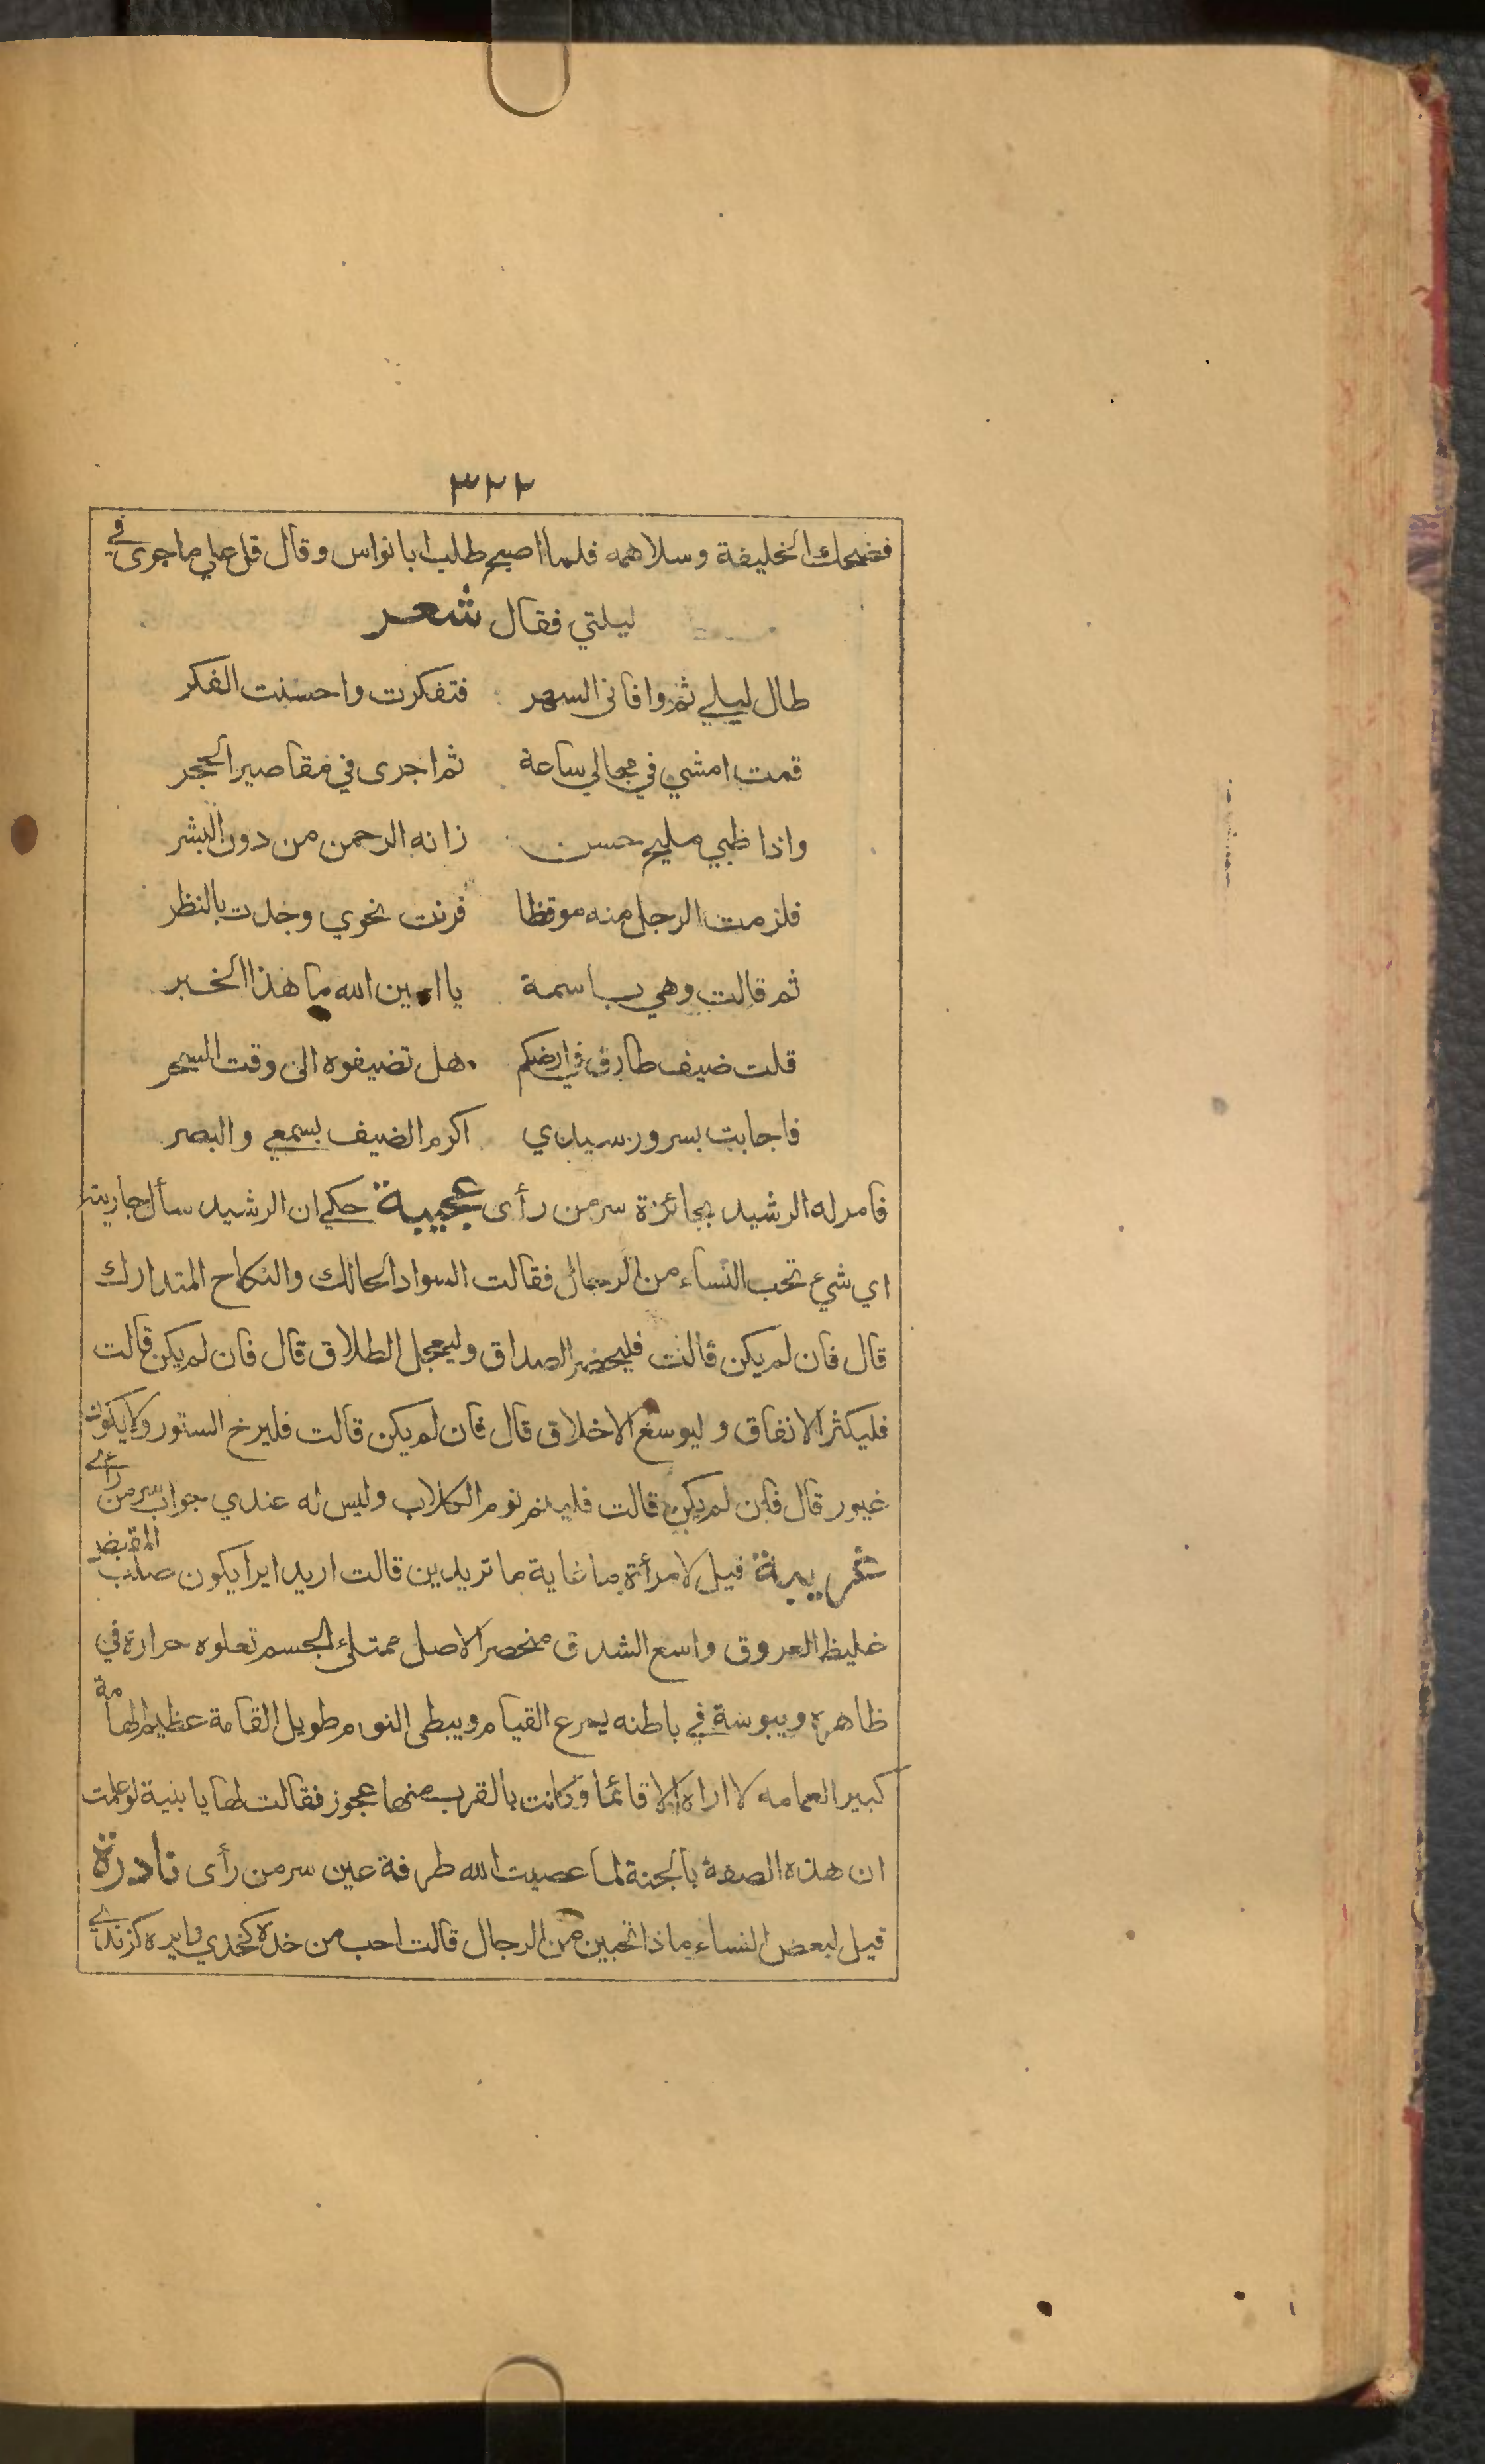 ٣٢٢
فضحك الخليفة وسلا همه فلما اصبح طلب ابا نواس وقال قل على ما جرى في
ليلتي فقال شعر
طال ليلي ثم وافاني السهر فتفكرت واحسنت الفكر
قمت امشي في مجالي ساعة ثم اجرى في مقاصير الحجر
واذا ظبي مليح حسن زانه الرحمن من دون البشر
فلزمت الرجل منه موقظا فرنت نحوي وجدت بالنظر
ثم قالت وهي باسمة يا امين الله ما هذا الخبر
قلت ضيف طارق في ارضكم هل تضيفوه الى وقت السحر
فاجابت بسرور سيدي اكرم الضيف بسمعي والبصر
فامر له الرشيد بجائزة سر من رأى عجيبة حكي ان الرشيد سأل جاريته
اي شيء تحب النساء من الرجال فقالت السواد الحالك والنكاح المتدارك
قال فان لم يكن قالت فليحضر الصداق وليعجل الطلاق قال فان لم يكن قالت
فليكثر الانفاق وليوسع الاخلاق قال فان لم يكن قالت فليرخ الستور ولا يكون
غيور قال فان لم يكن قالت فلينم نوم الكلاب وليس له عندي جواب سر من رأى
غريبة قيل لامرأة ما غاية ما تريدين قالت اريد ايرا يكون صلب المقبض
غليظ العروق واسع الشدق منحصر الاصل ممتلئ الجسم تعلوه حرارة في
ظاهره ويبوسة في باطنه يسرع القيام ويبطى النوم طويل القامة عظيم الهامة
كبير العمامه لا اراه الا قائما وكانت بالقرب منها عجوز فقالت لها يا بنية لو علمت
ان هذه الصفة بالجنة لما عصيت الله طرفة عين سر من رأى نادرة
قيل لبعض النساء ماذا تحبين من الرجال قالت احب من خده كخدي وايره كزندي